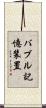 バブル記
憶装置